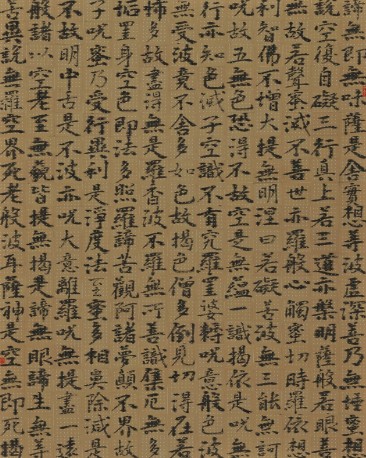 諦無即無味薩是舍實想波虛深善乃無實想
說空復自礙三行真上若三道亦槃明薩般若眼善
無故若聲滅不善世亦羅般心觸蜜切時羅依想
利智佛不增大提無明涅曰若礙苦波無三能無訶
咒故五無色恐得不故空是無蘊一識揭依是咒
行亦知色滅子空識不有究羅婆咒意般色
無受波竟不舍多如色故揭色僧多倒見切得在若
多故盡得無是羅香波不羅無河善識集厄無多
垢罣身空色即法多照羅諦苦觀阿諸夢顛不界故
子咒蜜乃受行利是淨度法至蜜多相鼻除減是
不故明中古是不波亦咒大意離羅咒無提盡一遠
般諸以空老至無藐皆提無揭是諦無眼諦生無等
異說無羅空界死老般波耳薩神是空無即死揭